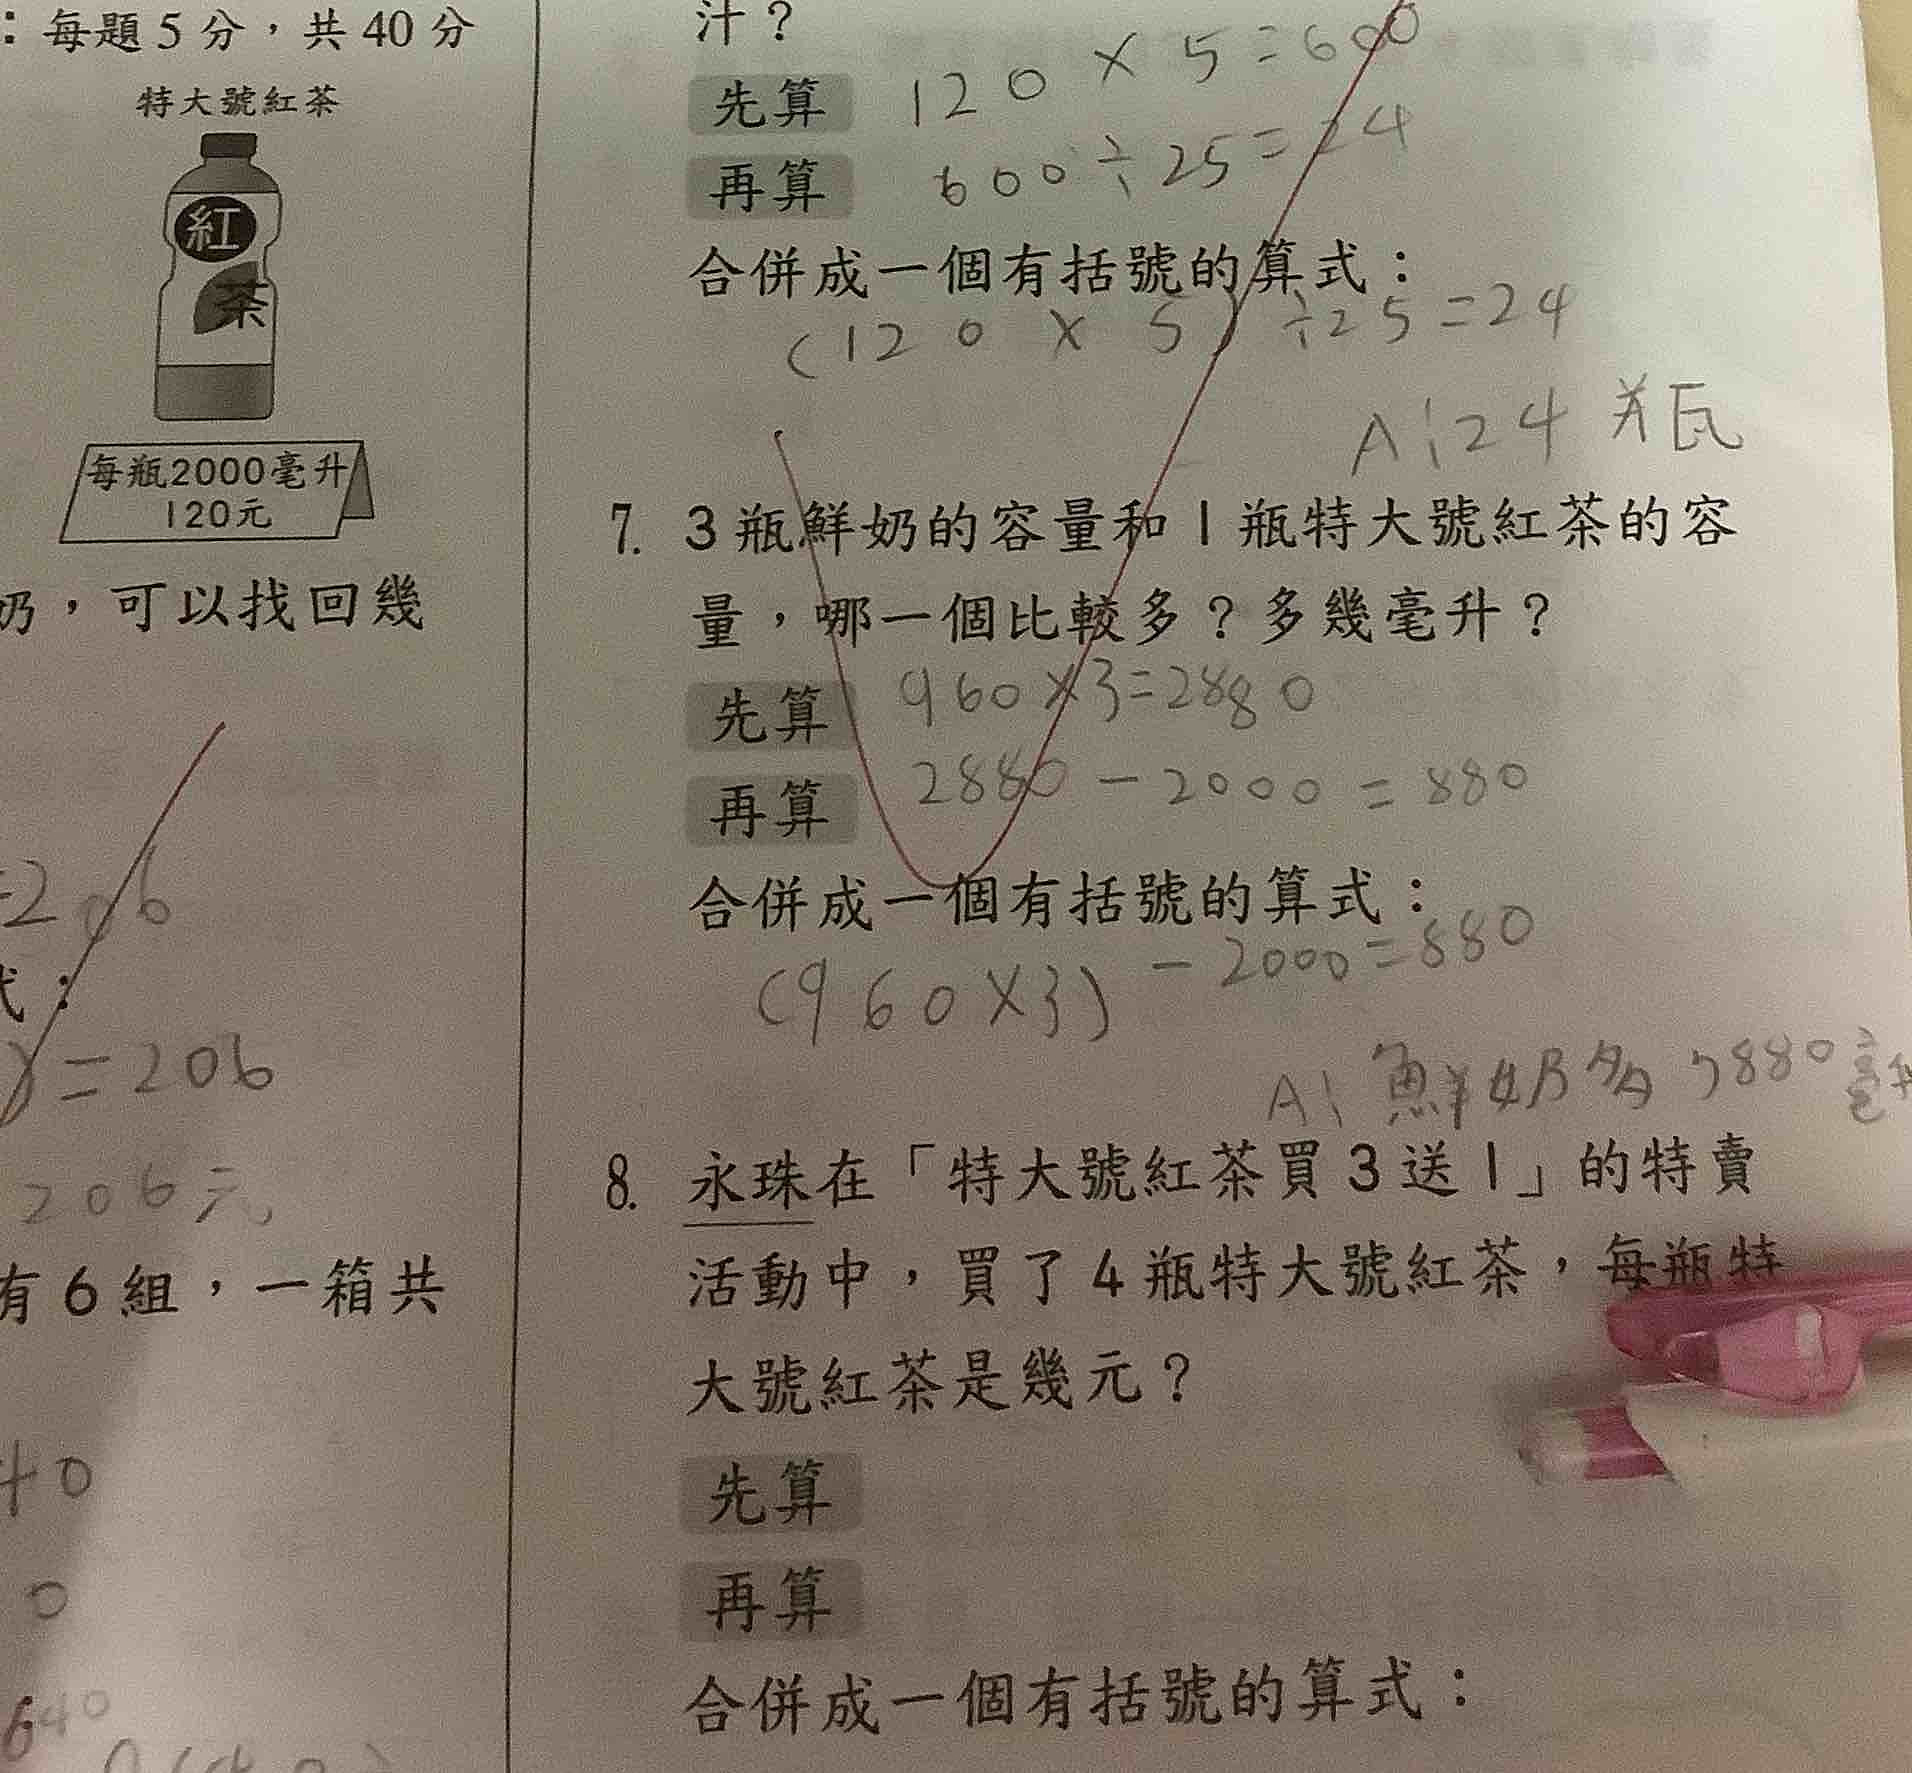 ：每題5分，共40分
特大號紅茶
紅
茶
每瓶2000毫升
120元
奶，可以找回幾
=206
式：
)=206
206元
有6組，一箱共
40
0
640
汁？
先算 120×5=600
再算 600÷25=24
合併成一個有括號的算式：
(120×5)÷25=24
A:24瓶
7. 3瓶鮮奶的容量和1瓶特大號紅茶的容
量，哪一個比較多？多幾毫升？
先算 960×3=2880
再算 2880-2000=880
合併成一個有括號的算式：
(960×3)-2000=880
A:鮮奶多,880毫升
8. 永珠在「特大號紅茶買3送1」的特賣
活動中，買了4瓶特大號紅茶，每瓶特
大號紅茶是幾元？
先算
再算
合併成一個有括號的算式：